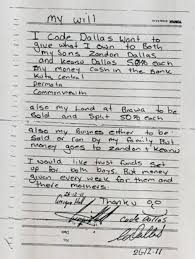 my will
I Cade Dallas Want to
give what I own to Both
my Sons Zandon Dallas
and Keanu Dallas 50% each
my money Cash in the Bank
Kuta Central
Permata
Commonwealth
also my Land at Brawa to be
Sold and Split 50% each
also my Busnes either to be
Sold or ran by my family But
money goes to Zandon & Keanu
I would like trust funds set
up for both boys. But money
given every week for them and
there mothers.
28-12-11
Thanku
Cade Dallas
26-12-11